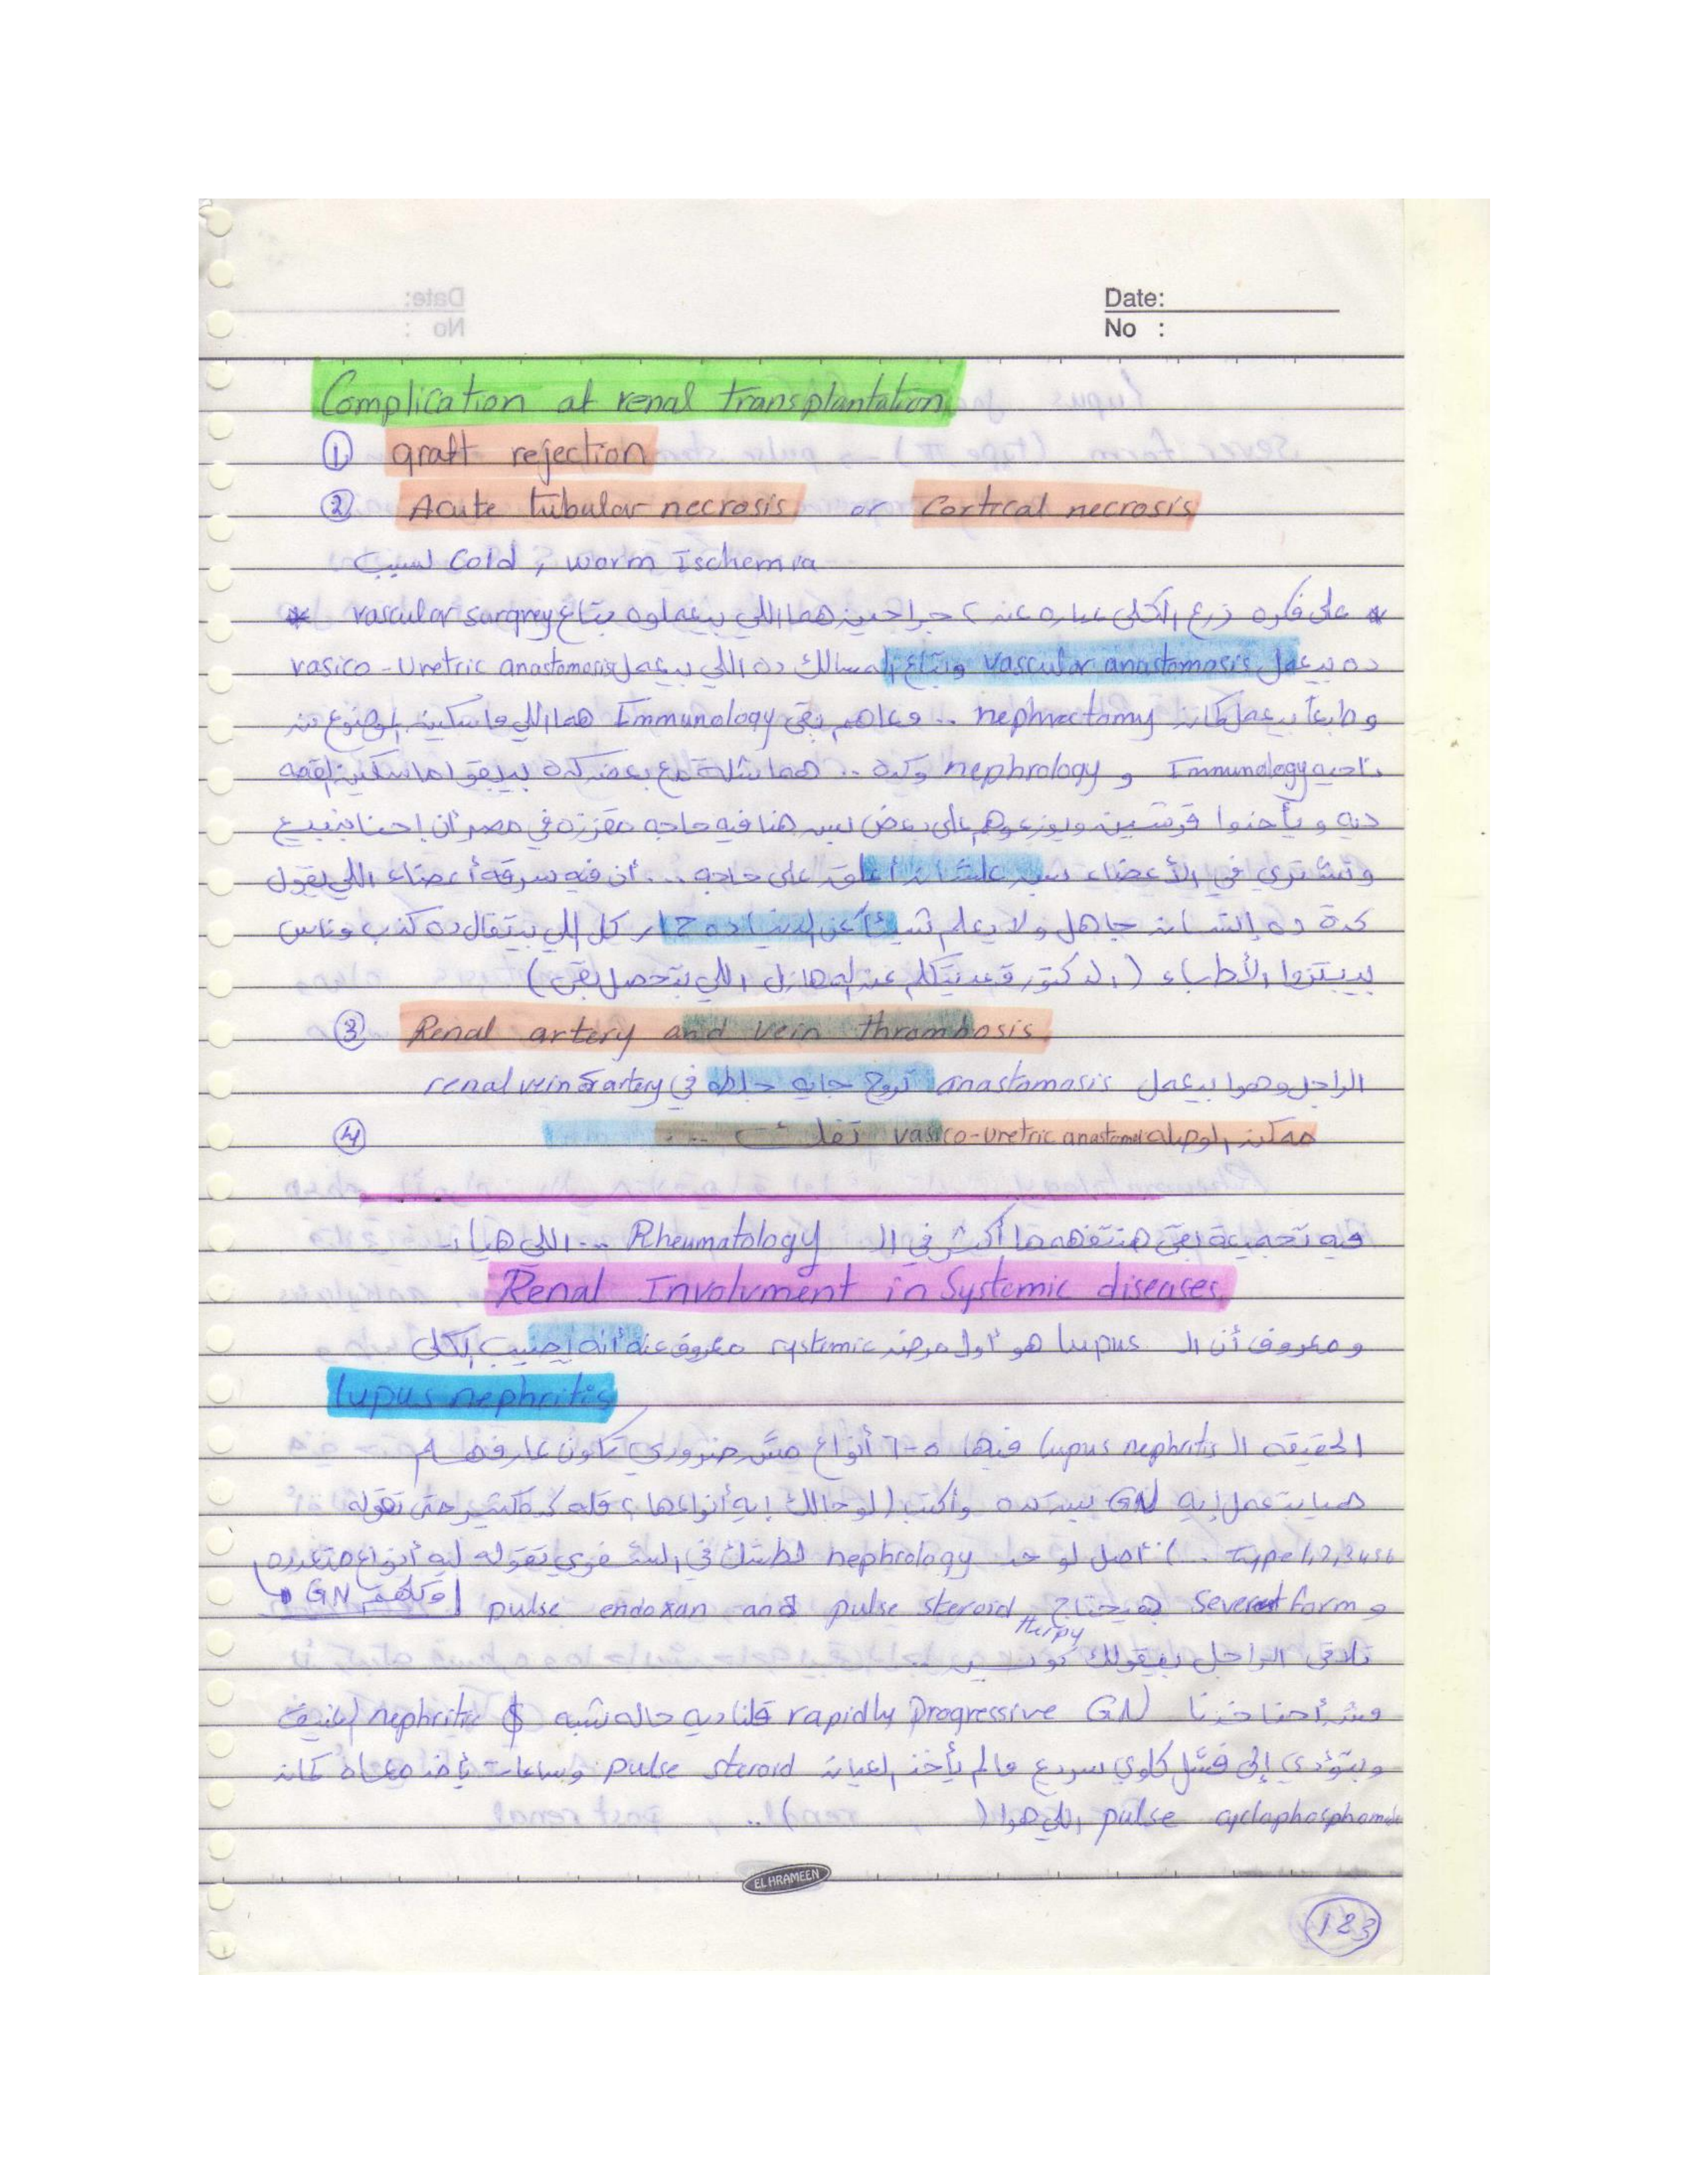 Date:
No :
Complication at renal transplantation
① graft rejection
② Acute tubular necrosis or Cortical necrosis
لسبب Cold , worm Ischemia
* على فكره زرع الكلى عباره عن ٢ جراحين هما اللي بيعملوه بتاع vascular surgrey *
ده بيعمل vascular anastomosis وبتاع المسالك ده اللي بيعمل vasico-Uretric anastomosis
وطبعاً بيعمل كمان nephrectomy .. ومعاهم بقى Immunology هما اللي ماسكين الموضوع من
ناحيه Immunology و nephrology وكده .. هما شلة مع بعض كده بيبقوا ماسكين القصه
ديه و يأخدوا قرشين ويوزعوهم على بعض بس هنا فيه حاجه مقززه في مصر أن إحنا بنبيع
ونشتري في الأعضاء بس علشان أعلق على حاجه ... أن فيه سرقة أعضاء اللي يقول
كدة ده إنسان جاهل ولا يعلم شيئاً عن الدنيا ده كل اللي بيتقال ده كذب وناس
بيبتزوا الأطباء (الدكتور قعد يتكلم عن المهازل اللي بتحصل بقى)
③ Renal artery and vein thrombosis
الراجل وهوا بيعمل anastomosis تروح جايه جلطه في renal vein & artery
④ ممكن الوصله vasico-uretric anastomo تفلت ...
فيه تجميعة بقى هنتفهمها أكتر في الـ Rheumatology ... اللي هيا :-
Renal Involvment in Systemic diseases
و معروف أن الـ lupus هو أول مرض systemic معروف عنه أنه يصيب الكلى
lupus nephritis
الحقيقه الـ lupus nephritis فيها ٥-٦ أنواع مش ضروري تكون عارفهم
هيا بتعمل إيه GN بيبتده وأكتب (لو حالك إيه أنواعها ؟ قله كده كتير حتى تقوله
type 1,2,3,4,5,6 ..) أصل لو حد nephrology لطشك في الشفوي تقوله ليه أنواع متعدده
وكلهم GN
و Severest form هيحتاج pulse steroid and pulse endoxan
therpy
تلاقى الراجل بيقولك كويس ..
مش أحنا خدنا rapidly Progressive GN قلنا ديه حاله شبه nephritic $ العنيف
وبتؤدي إلى فشل كلوي سريع مالم يأخد العيان pulse steroid وساعات يأخد معاه كمان
pulse cyclophosphamide اللي هوا ( ) ..
EL HRAMEEN
123